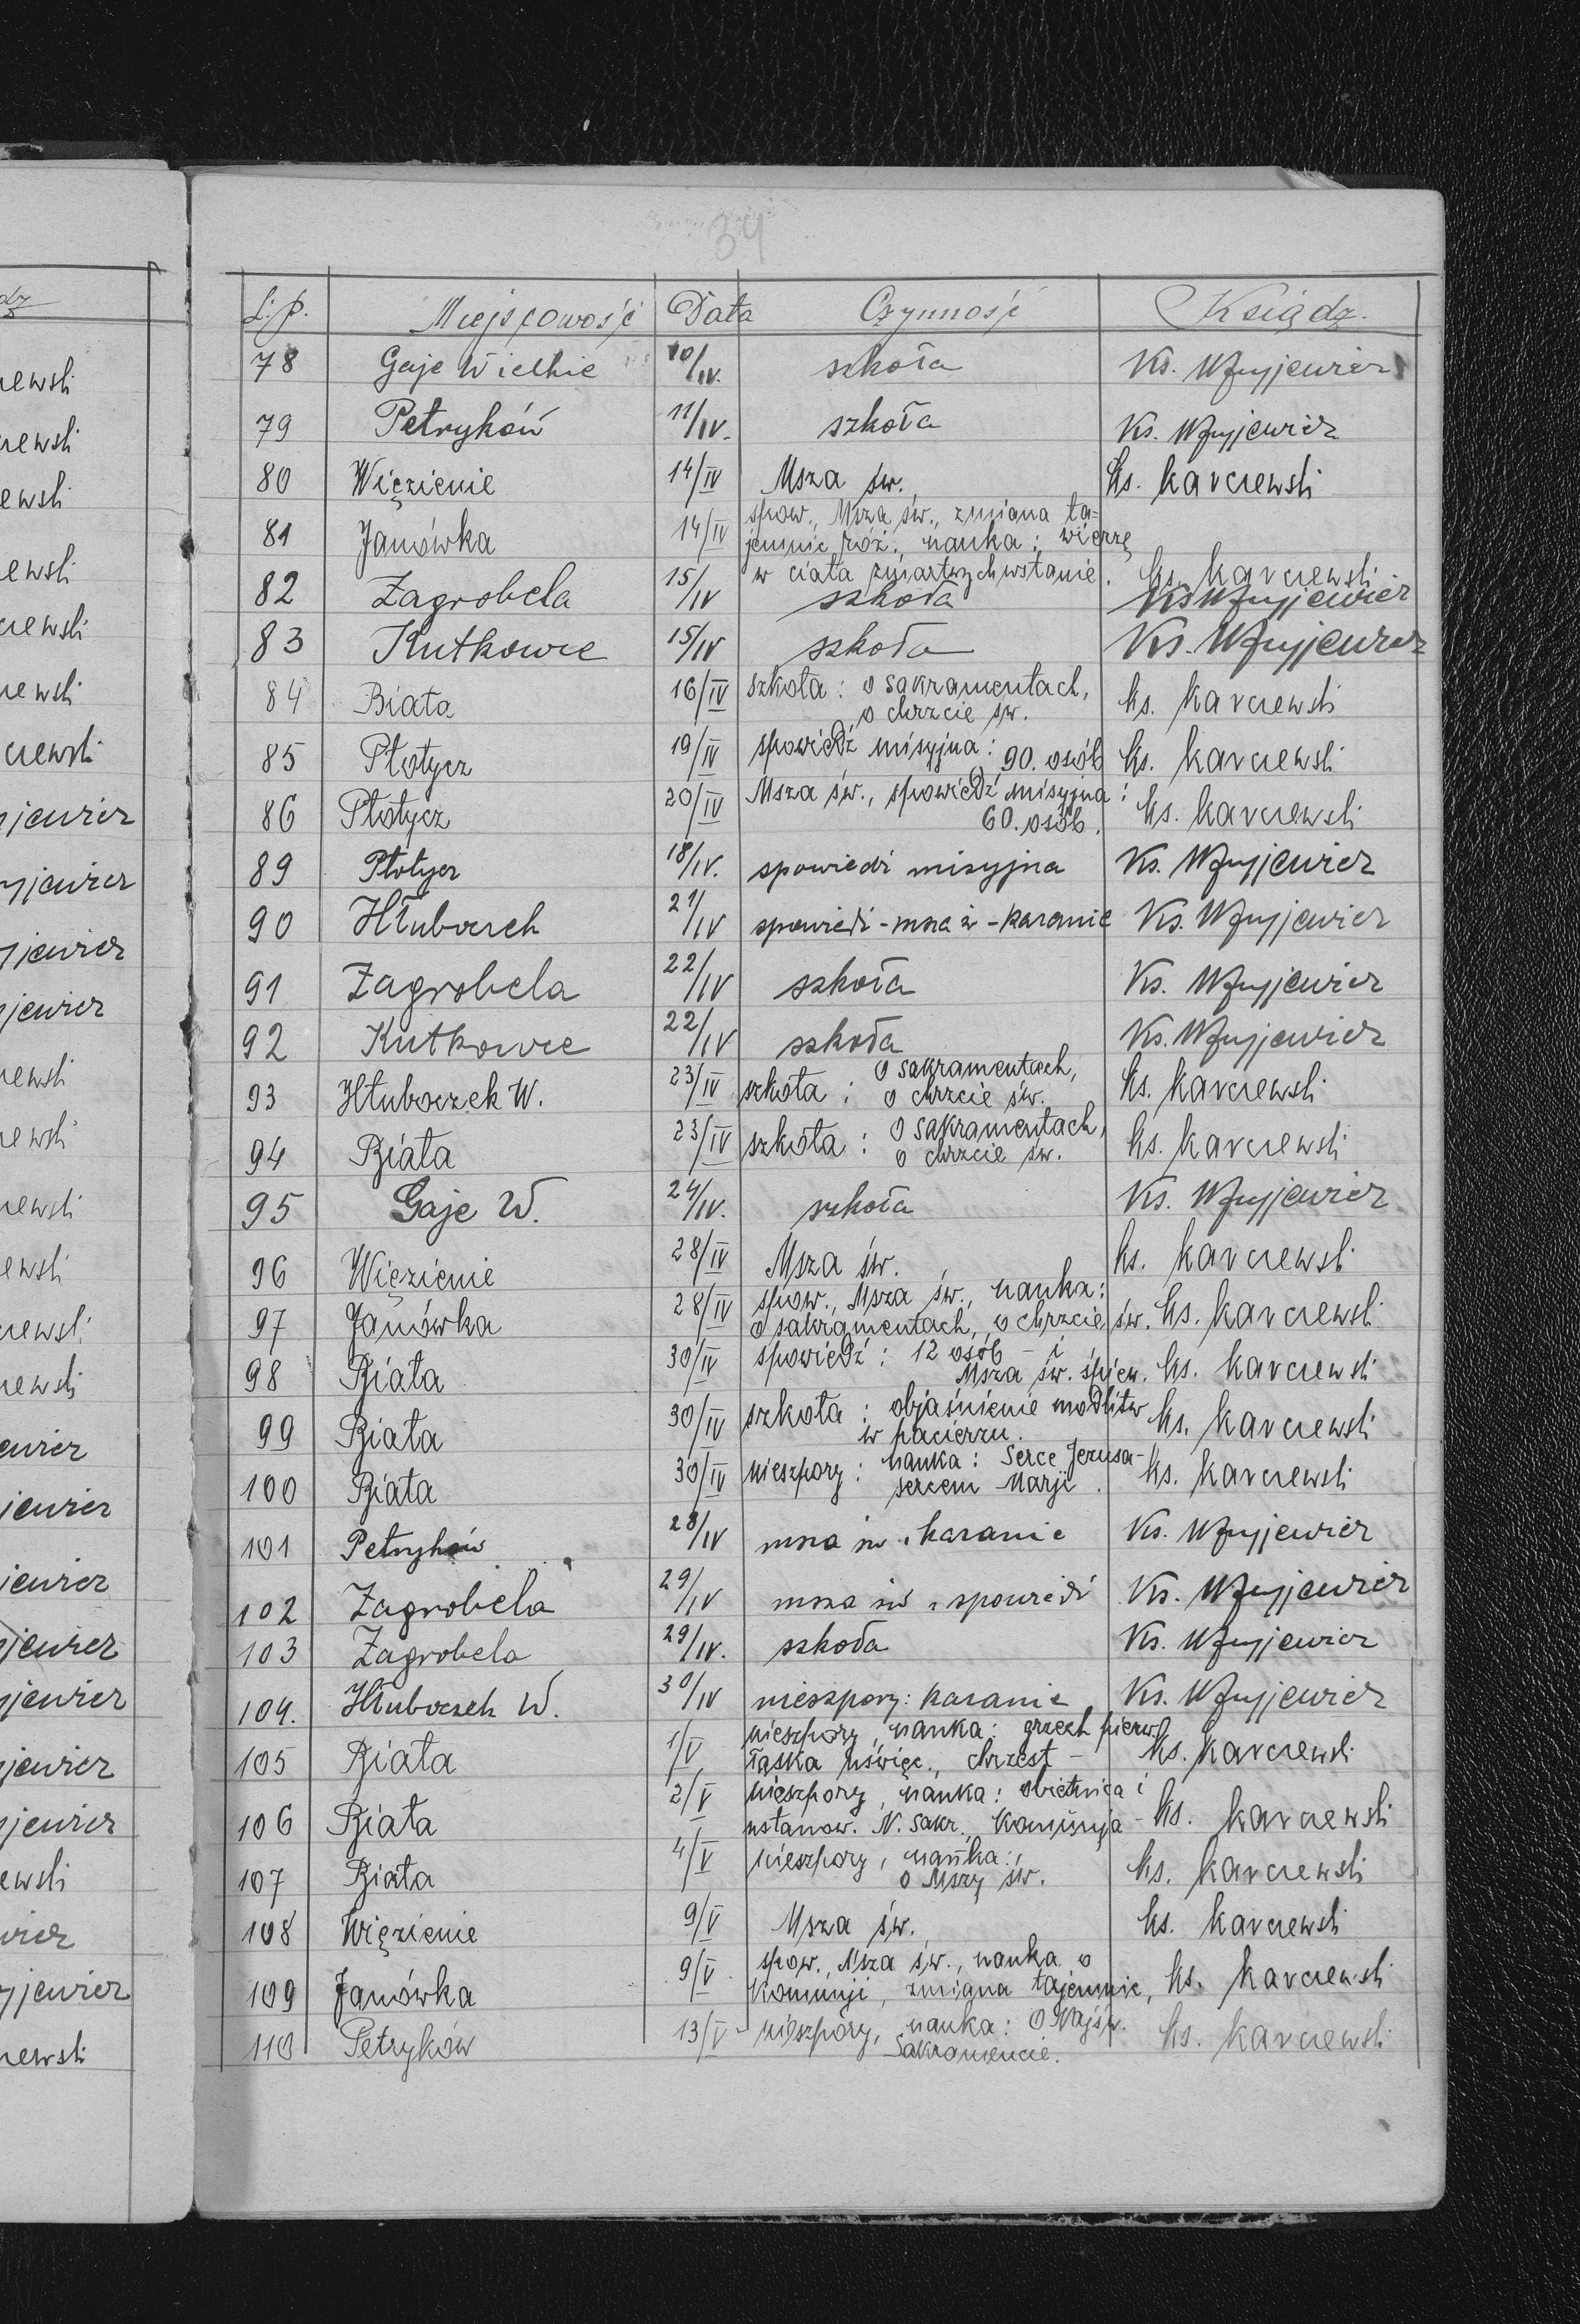 34
L.p. Miejscowość Data Czynność Ksiądz.
78 Gaje Wielkie 10/IV. szkoła Ks.
79 Petryków 11/IV. szkoła Ks.
80 Więzienie 14/IV Msza św. ks. Karczewski
81 Janówka 14/IV spow., Msza św., zmiana ta-
jemnic róż., nauka: wierzę
w ciała zmartwychwstanie. ks. Karczewski
82 Zagrobela 15/IV szkoła Ks.
83 Kutkowce 15/IV szkoła Ks.
84 Biała 16/IV szkoła: o sakramentach,
o chrzcie św. ks. Karczewski
85 Płotycz 19/IV spowiedź misyjna: 90. osób ks. Karczewski
86 Płotycz 20/IV Msza św., spowiedź misyjna:
60. osób. ks. Karczewski
89 Płotycz 18/IV. spowiedź misyjna Ks.
90 Hłuboczek 21/IV spowiedź - msza św - kazanie Ks.
91 Zagrobela 22/IV szkoła Ks.
92 Kutkowce 22/IV szkoła Ks.
93 Hłuboczek W. 23/IV szkoła: o sakramentach,
o chrzcie św. ks. Karczewski
94 Biała 23/IV szkoła: o sakramentach,
o chrzcie św. ks. Karczewski
95 Gaje W. 24/IV. szkoła Ks.
96 Więzienie 28/IV Msza św. ks. Karczewski
97 Janówka 28/IV spow., Msza św., nauka:
o sakramentach, o chrzcie św. ks. Karczewski
98 Biała 30/IV spowiedź: 12 osób - i
Msza św. śpiew. ks. Karczewski
99 Biała 30/IV szkoła: objaśnienie modlitw
w pacierzu. ks. Karczewski
100 Biała 30/IV nieszpory: nauka: Serce Jezusa -
sercem Marji. ks. Karczewski
101 Petryków 28/IV msza św. kazanie Ks.
102 Zagrobela 29/IV msza św spowiedź Ks.
103 Zagrobela 29/IV. szkoła Ks.
104. Hłuboczek W. 30/IV nieszpory: kazanie Ks.
105 Biała 1/V nieszpory, nauka: grzech pierw.
łaska uświęc., chrzest - ks. Karczewski
106 Biała 2/V nieszpory, nauka: obietnica i
ustanow. N. Sakr. Komunja - ks. Karczewski
107 Biała 4/V nieszpory, nauka:
o Mszy św. ks. Karczewski
108 Więzienie 9/V Msza św. ks. Karczewski
109 Janówka 9/V spow., Msza św., nauka o
Komunji, zmiana tajemnic, ks. Karczewski
110 Petryków 13/V nieszpory, nauka: O Najśw.
Sakramencie. ks. Karczewski